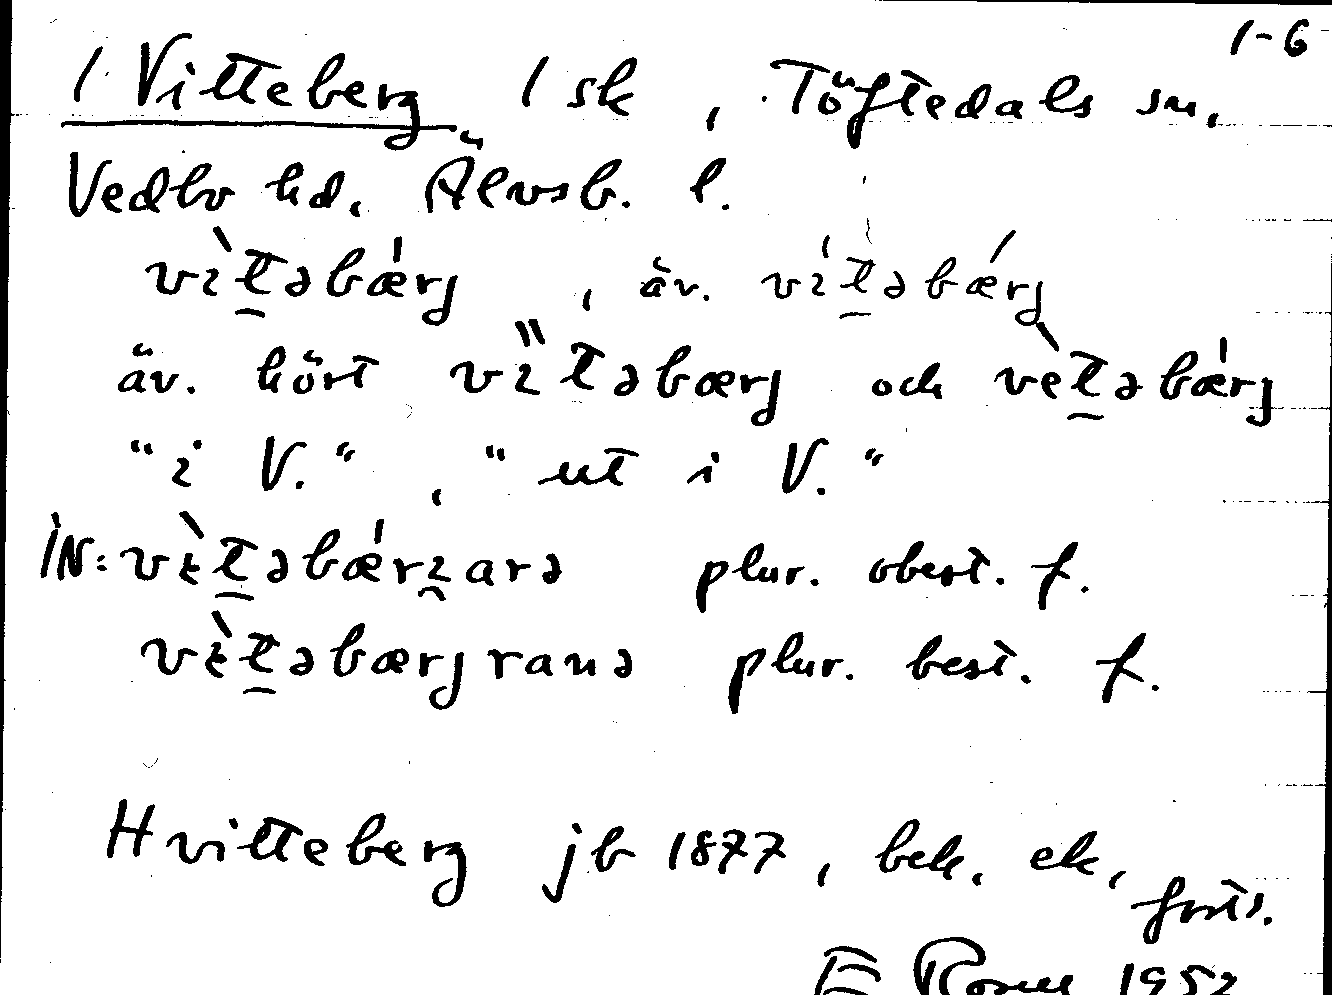 1-6
1 Vitteberg 1 sk, Töftedals sn,
Vedbo hd, Älvsb. l.
vìt̰əbǽrj, äv. vít̰əbǽrj
äv. hört vi̋təbærj och vèt̰əbǽrj
"i V.", "ut i V."
IN: vɛ̀t̰əbǽrɪ̯arə plur. obest. f.
vɛ̀t̰əbærjranə plur. best. f.
Hvitteberg jb 1877, bek. ek,
forts.
1952